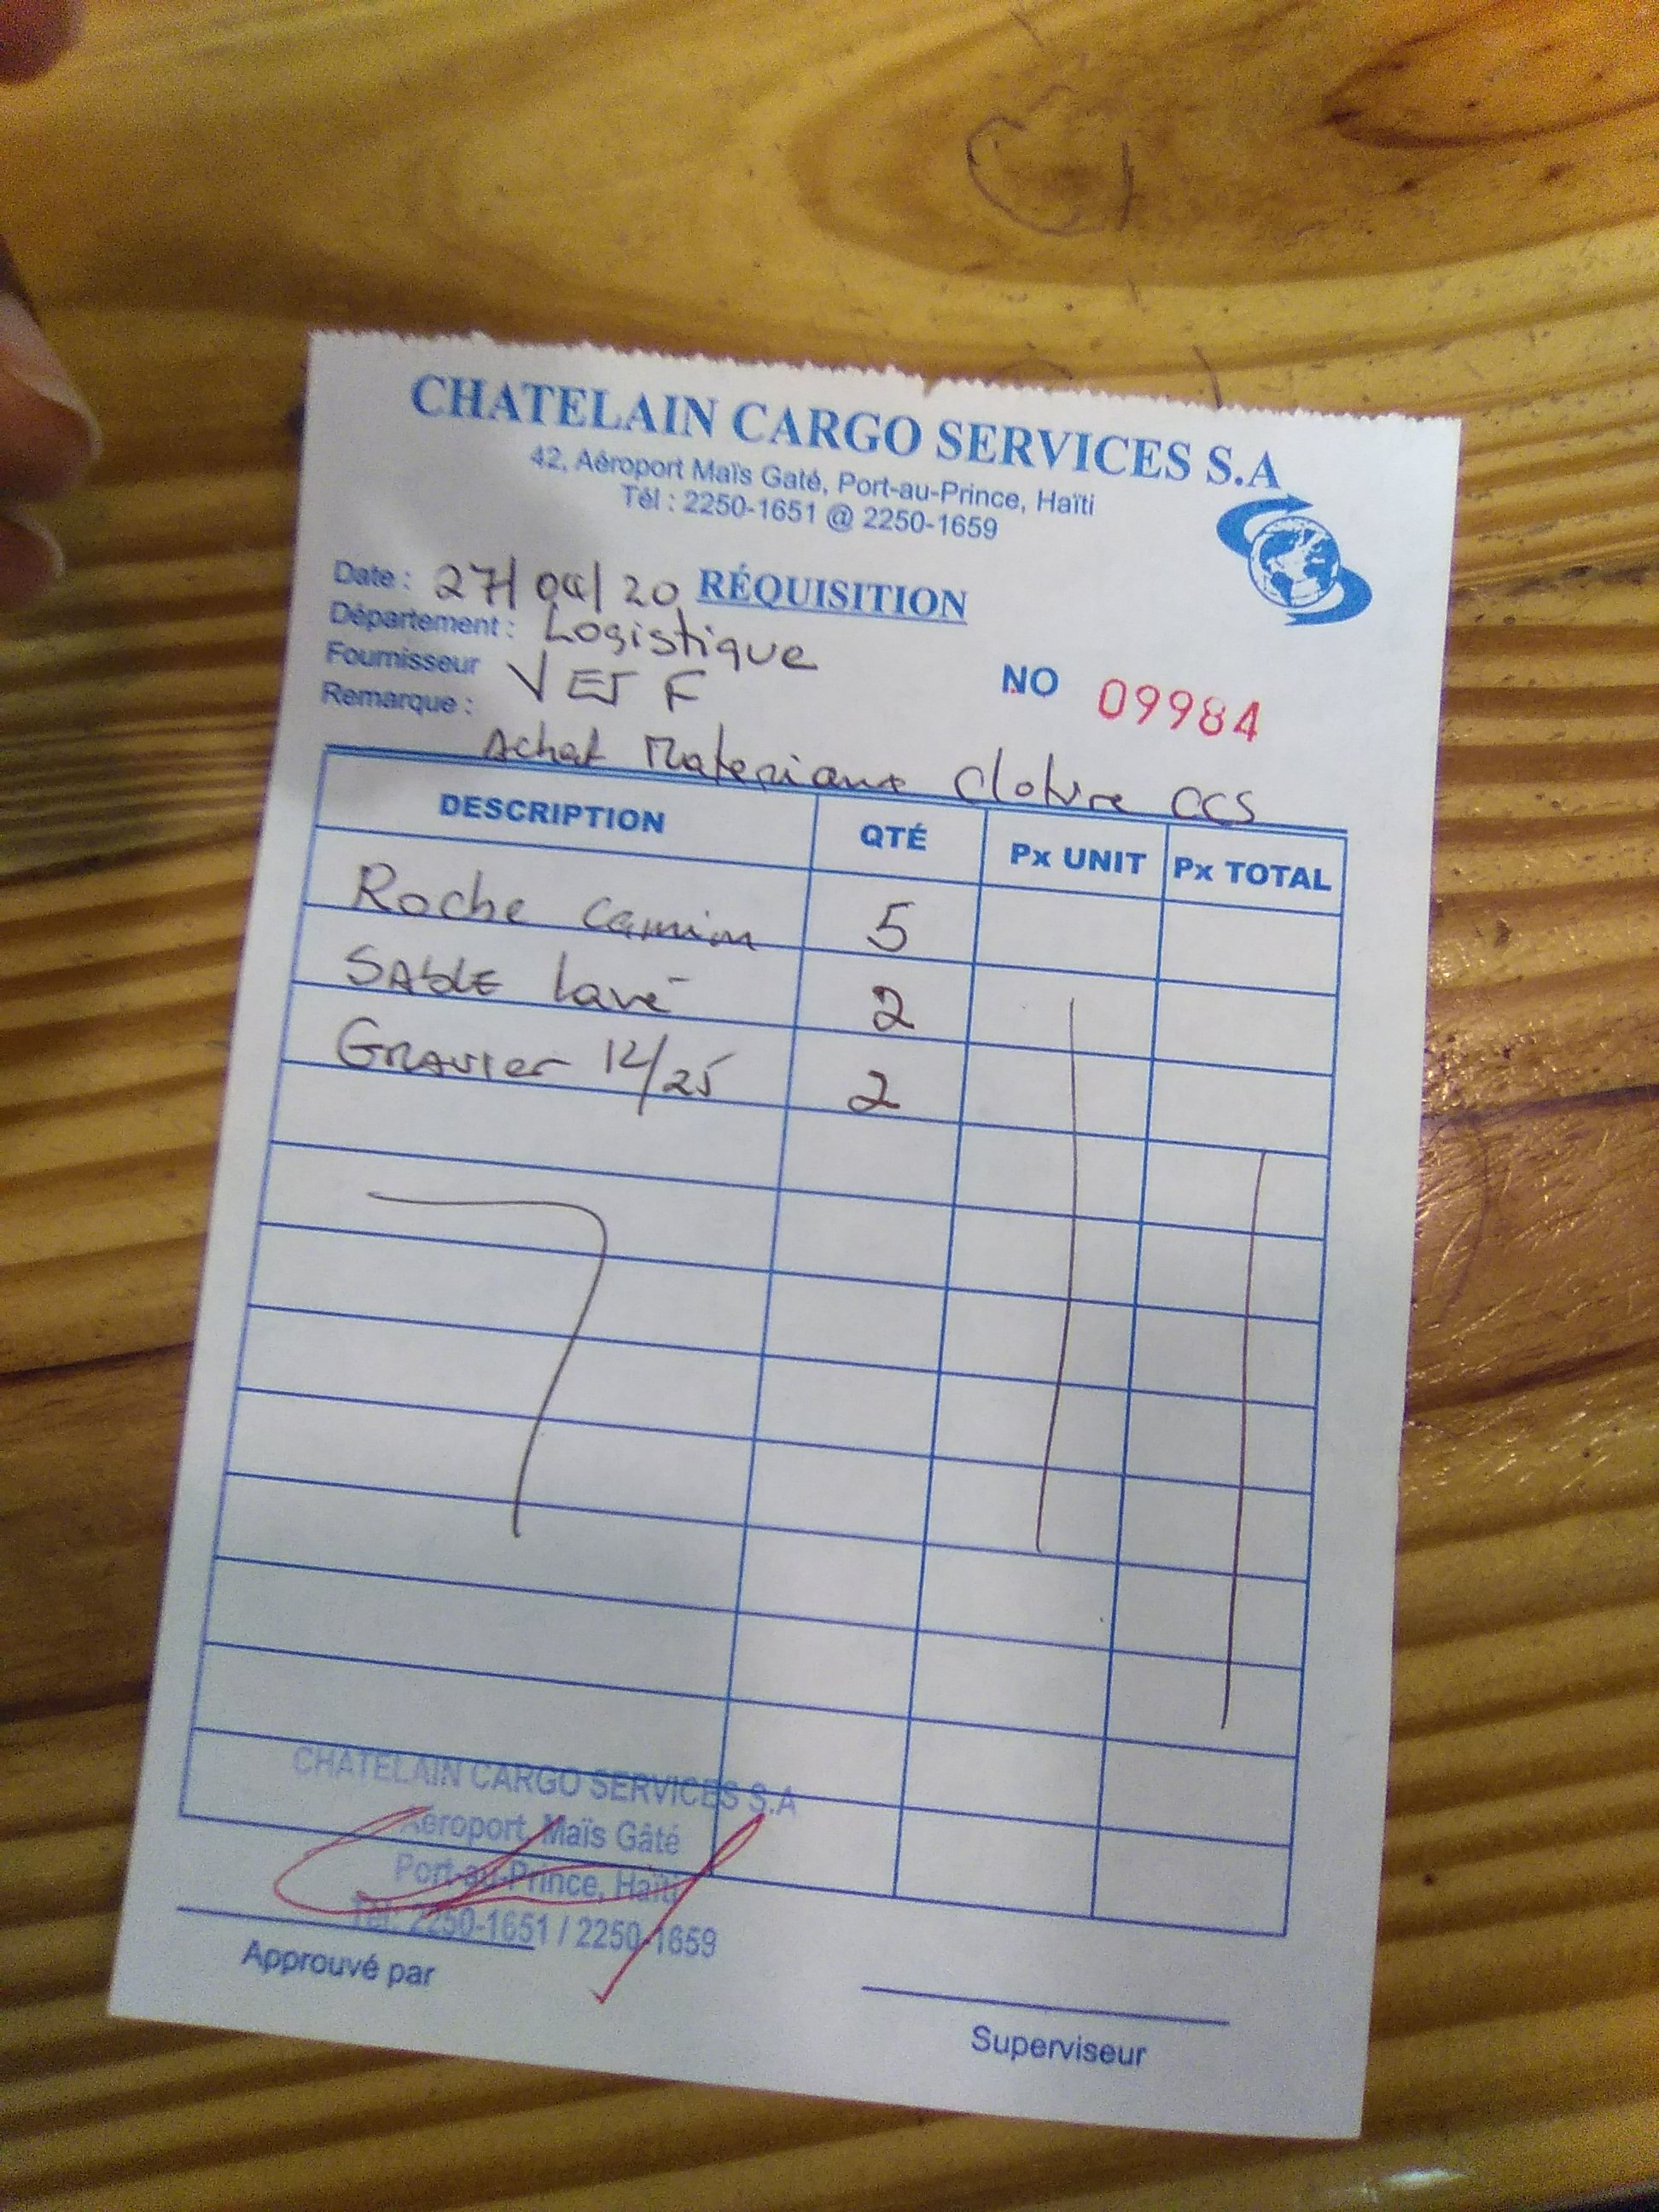 CHATELAIN CARGO SERVICES S.A
42, Aéroport Maïs Gaté, Port-au-Prince, Haïti
Tél : 2250-1651 @ 2250-1659
Date : 27/04/20 RÉQUISITION
Département : Logistique
Fournisseur V ET F
NO 09984
Remarque :
Achat Materiaux Cloture CCS
DESCRIPTION QTÉ Px UNIT Px TOTAL
Roche camion 5
SABLE lavé 2
Gravier 12/25 2
CHATELAIN CARGO SERVICES S.A
Aéroport, Maïs Gâté
Port-au-Prince, Haïti
Tél: 2250-1651 / 2250-1659
Approuvé par
Superviseur